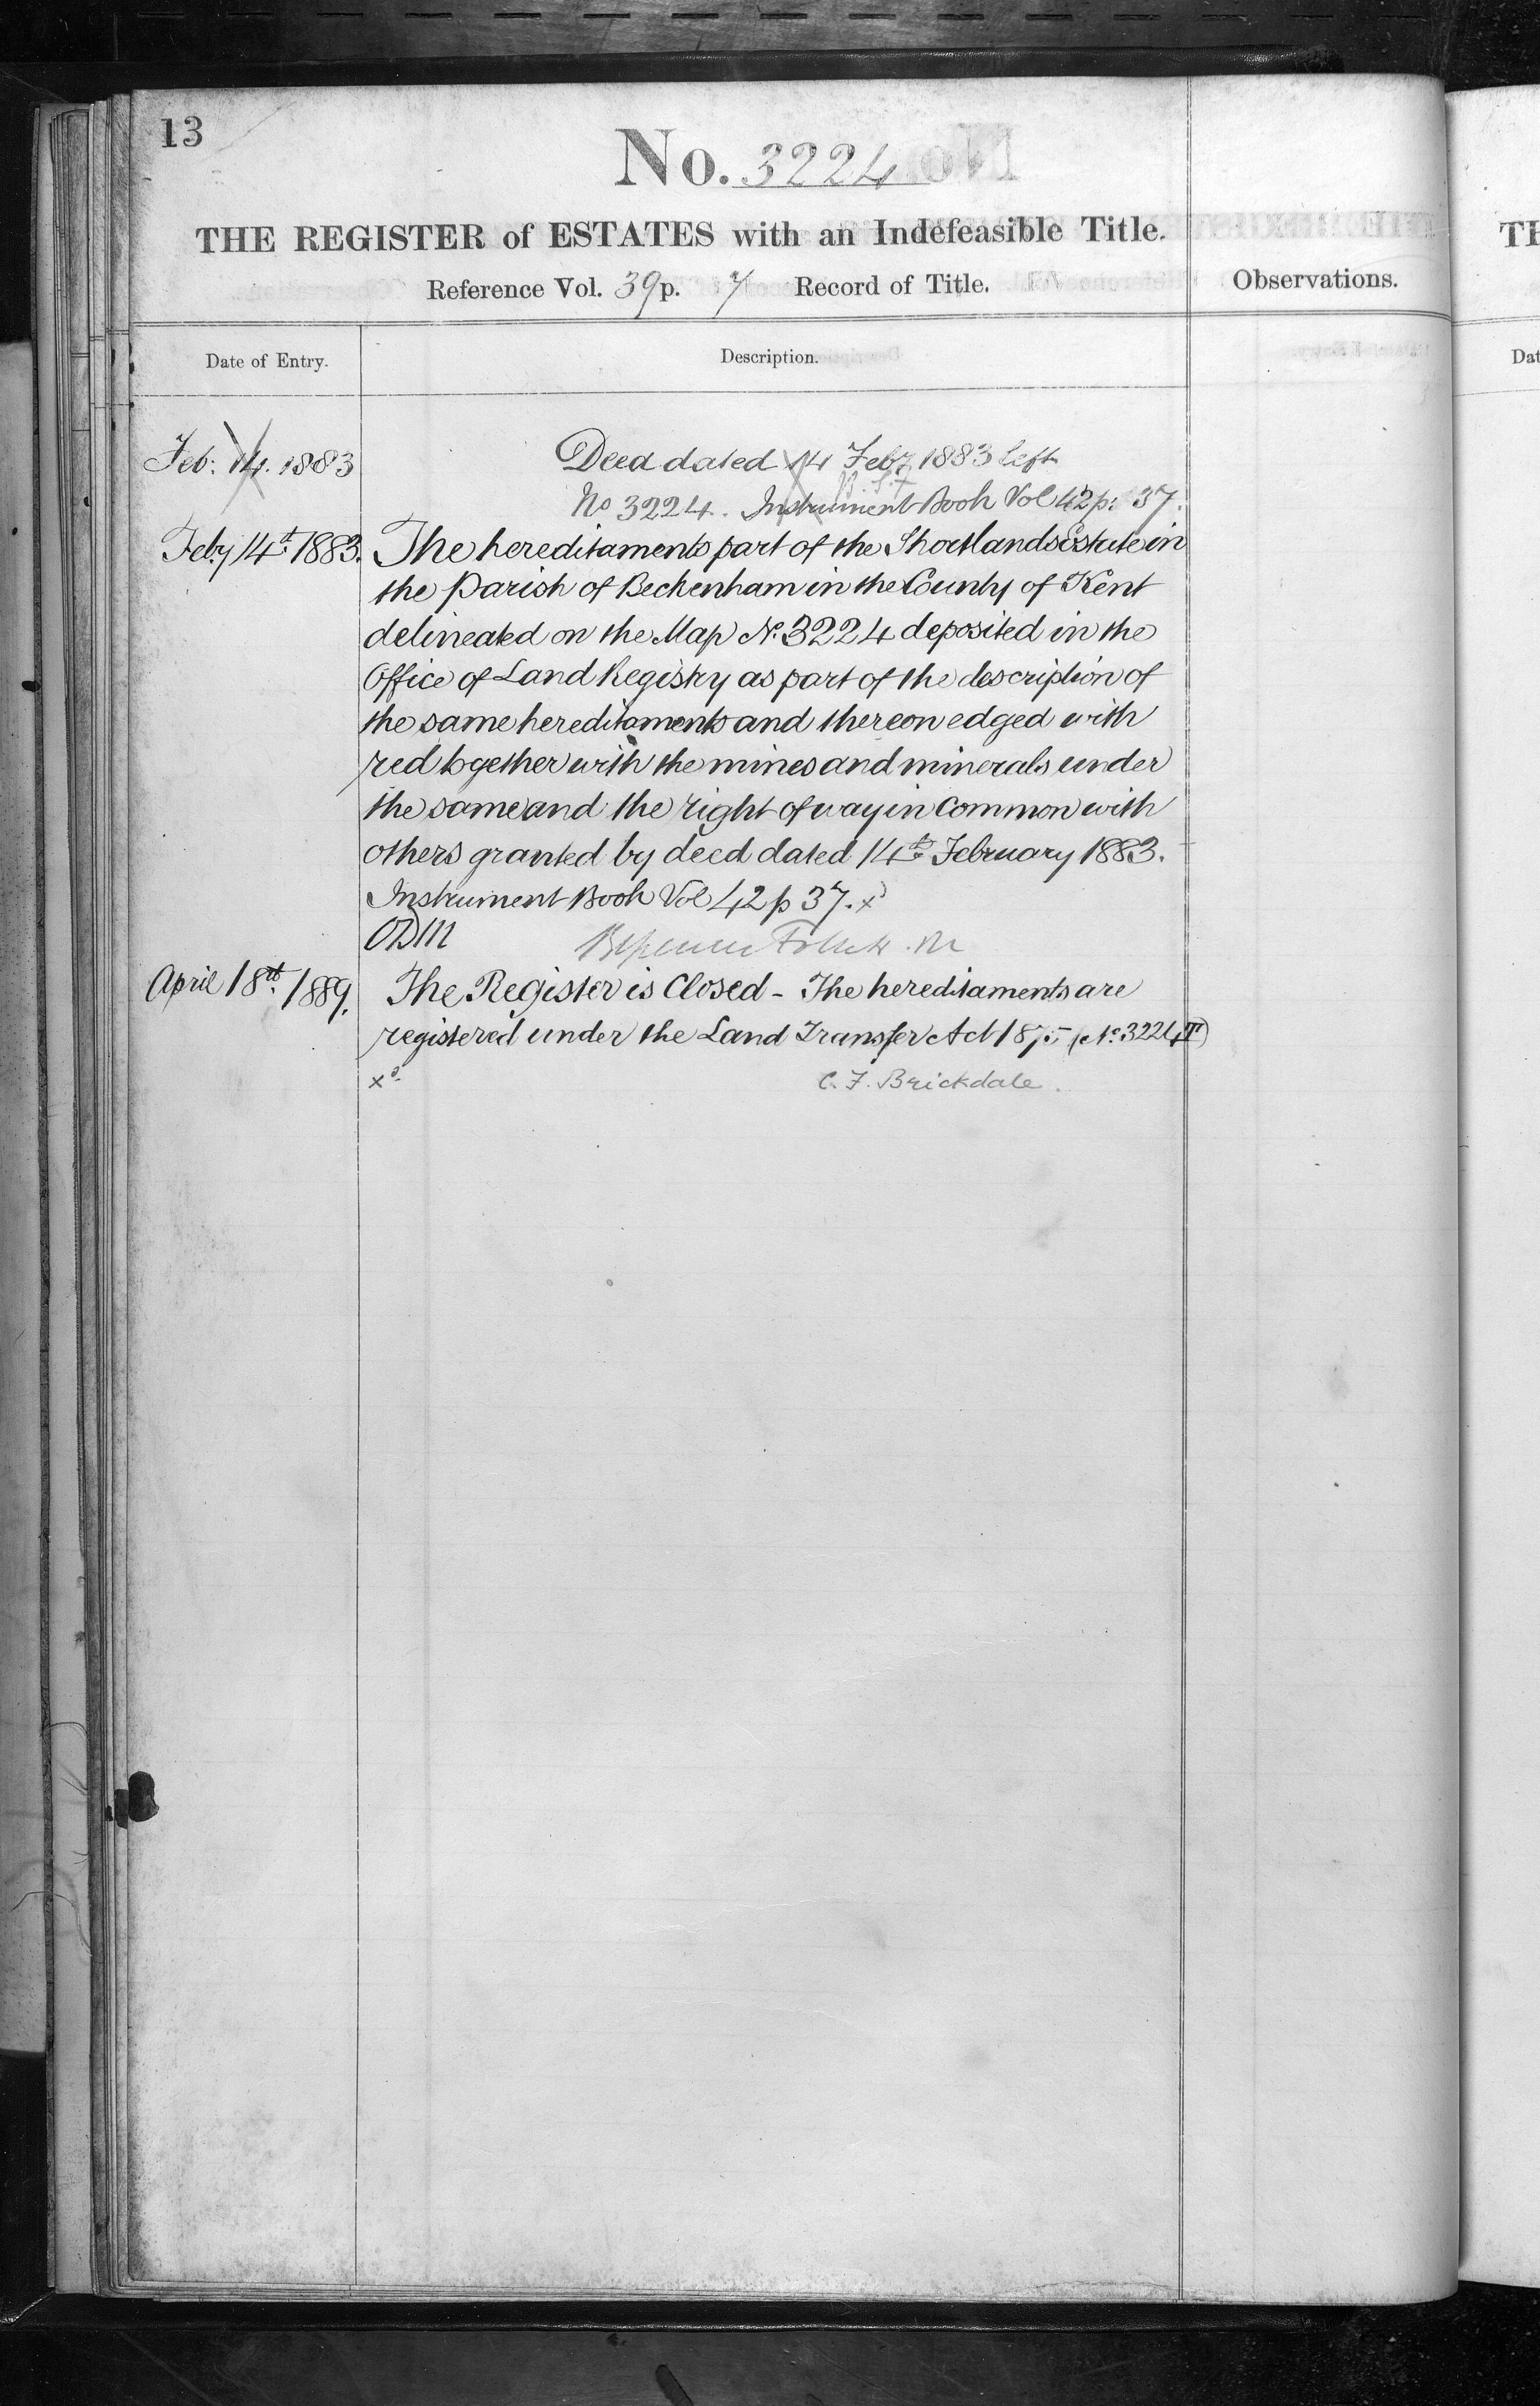 13
No. 3224
THE REGISTER of ESTATES with an Indefeasible Title.
Reference Vol. 39 p. 7 Record of Title.
Observations.
Date of Entry.
Description.
Feb: 14. 1883
Deed dated 14 Feby 1883 left
No 3224. Instrument Book Vol 42 p: 37.
Feby 14th 1883.
The hereditaments part of the Shortlands Estate in
the Parish of Beckenham in the County of Kent
delineated on the Map No. 3224 deposited in the
Office of Land Registry as part of the description of
the same hereditaments and thereon edged with
red together with the mines and minerals under
the same and the right of way in common with
others granted by deed dated 14th February 1883.
Instrument Book Vol 42 p 37. x
April 18th 1889.
The Register is Closed - The hereditaments are
registered under the Land Transfer Act 1875 (No. 3224 T)
C. F. Brickdale.
TH
Dat